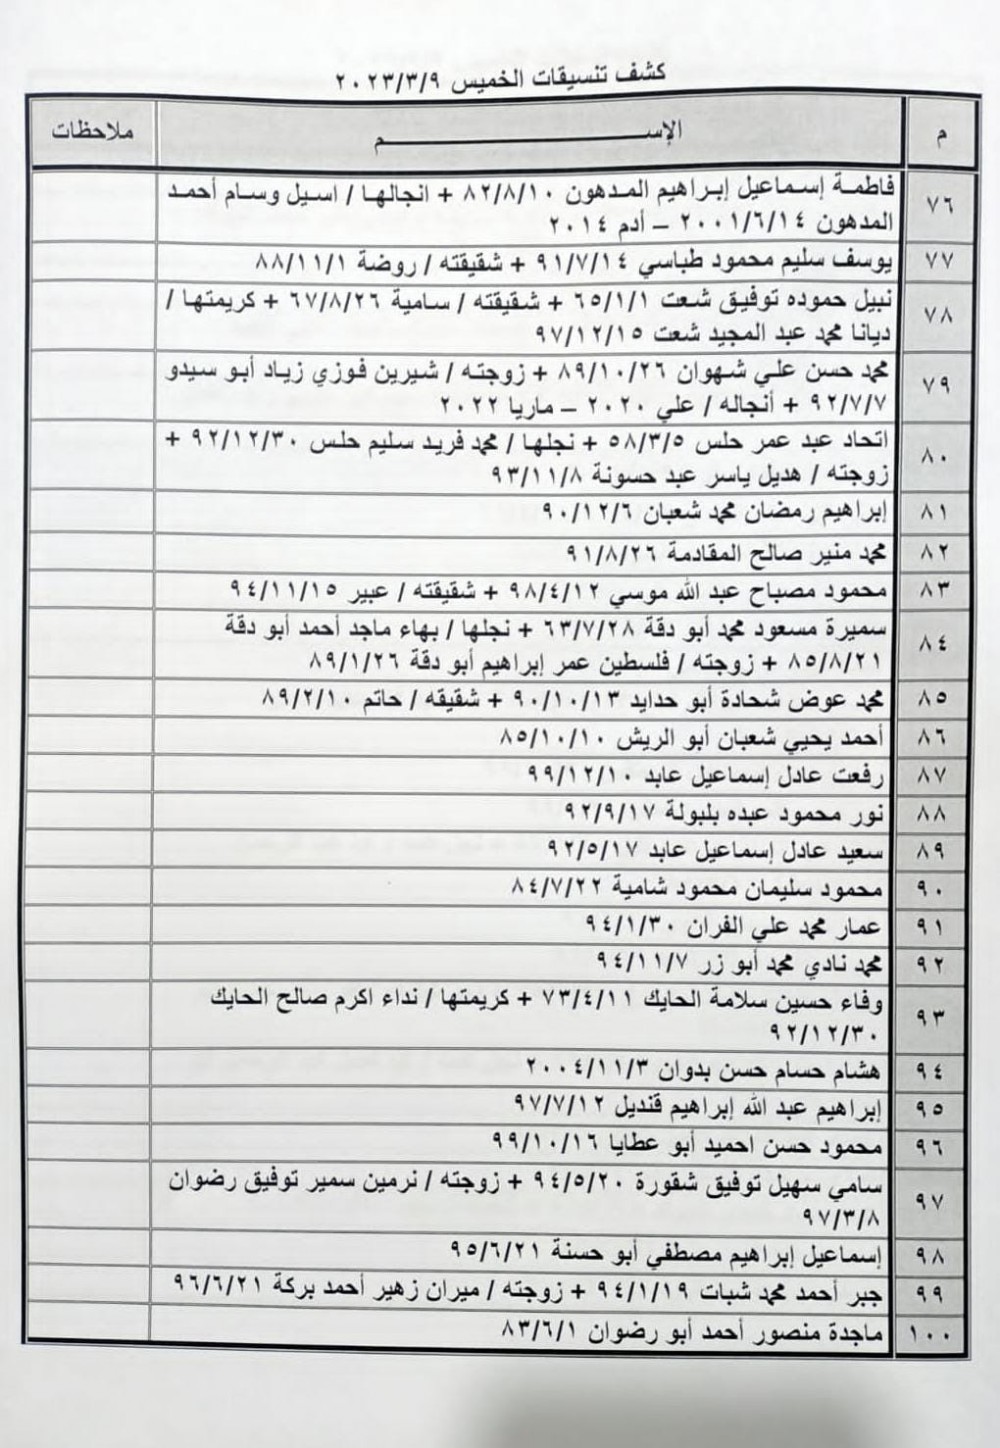 كشف تنسيقات الخميس ٢٠٢٣/٣/٩
م الإســـــــم ملاحظات
٧٦ فاطمة إسماعيل إبراهيم المدهون ٨٢/٨/١٠ + انجالها / اسيل وسام أحمد
المدهون ٢٠٠١/٦/١٤ – أدم ٢٠١٤
٧٧ يوسف سليم محمود طباسي ٩١/٧/١٤ + شقيقته / روضة ٨٨/١١/١
٧٨ نبيل حموده توفيق شعت ٦٥/١/١ + شقيقته / سامية ٦٧/٨/٢٦ + كريمتها /
ديانا محمد عبد المجيد شعت ٩٧/١٢/١٥
٧٩ محمد حسن علي شهوان ٨٩/١٠/٢٦ + زوجته / شيرين فوزي زياد أبو سيدو
٩٢/٧/٧ + أنجاله / علي ٢٠٢٠ – ماريا ٢٠٢٢
٨٠ اتحاد عبد عمر حلس ٥٨/٣/٥ + نجلها / محمد فريد سليم حلس ٩٢/١٢/٣٠ +
زوجته / هديل ياسر عبد حسونة ٩٣/١١/٨
٨١ إبراهيم رمضان محمد شعبان ٩٠/١٢/٦
٨٢ محمد منير صالح المقادمة ٩١/٨/٢٦
٨٣ محمود مصباح عبد الله موسي ٩٨/٤/١٢ + شقيقته / عبير ٩٤/١١/١٥
٨٤ سميرة مسعود محمد أبو دقة ٦٣/٧/٢٨ + نجلها / بهاء ماجد أحمد أبو دقة
٨٥/٨/٢١ + زوجته / فلسطين عمر إبراهيم أبو دقة ٨٩/١/٢٦
٨٥ محمد عوض شحادة أبو حدايد ٩٠/١٠/١٣ + شقيقه / حاتم ٨٩/٢/١٠
٨٦ أحمد يحيي شعبان أبو الريش ٨٥/١٠/١٠
٨٧ رفعت عادل إسماعيل عابد ٩٩/١٢/١٠
٨٨ نور محمود عبده بلبولة ٩٢/٩/١٧
٨٩ سعيد عادل إسماعيل عابد ٩٢/٥/١٧
٩٠ محمود سليمان محمود شامية ٨٤/٧/٢٢
٩١ عمار محمد علي الفران ٩٤/١/٣٠
٩٢ محمد نادي محمد أبو زر ٩٤/١١/٧
٩٣ وفاء حسين سلامة الحايك ٧٣/٤/١١ + كريمتها / نداء اكرم صالح الحايك
٩٢/١٢/٣٠
٩٤ هشام حسام حسن بدوان ٢٠٠٤/١١/٣
٩٥ إبراهيم عبد الله إبراهيم قنديل ٩٧/٧/١٢
٩٦ محمود حسن احميد أبو عطايا ٩٩/١٠/١٦
٩٧ سامي سهيل توفيق شقورة ٩٤/٥/٢٠ + زوجته / نرمين سمير توفيق رضوان
٩٧/٣/٨
٩٨ إسماعيل إبراهيم مصطفي أبو حسنة ٩٥/٦/٢١
٩٩ جبر أحمد محمد شبات ٩٤/١/١٩ + زوجته / ميران زهير أحمد بركة ٩٦/٦/٢١
١٠٠ ماجدة منصور أحمد أبو رضوان ٨٣/٦/١